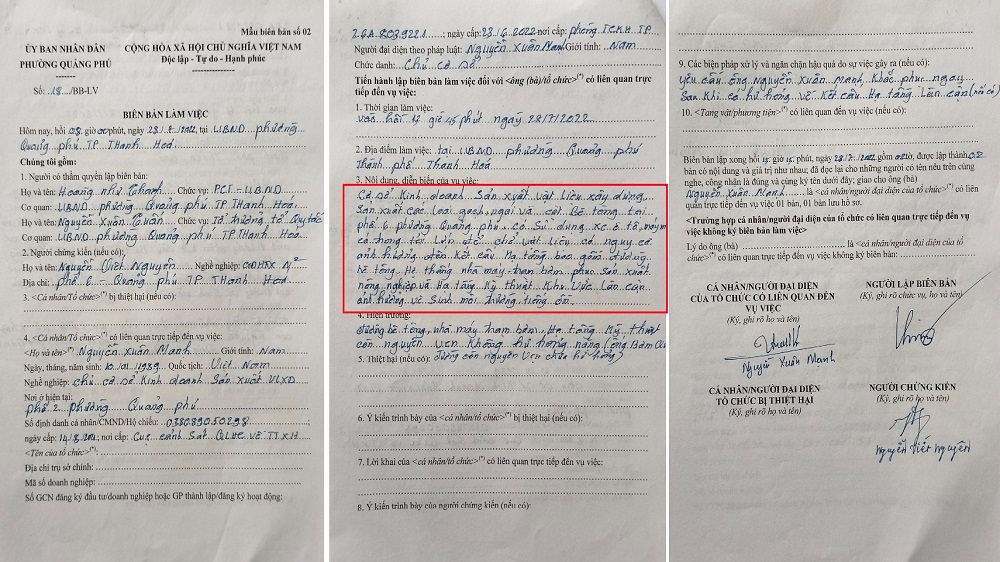 Mẫu biên bản số 02
ỦY BAN NHÂN DÂN
PHƯỜNG QUẢNG PHÚ
CỘNG HÒA XÃ HỘI CHỦ NGHĨA VIỆT NAM
Độc lập - Tự do - Hạnh phúc
Số: 18 /BB-LV
BIÊN BẢN LÀM VIỆC
Hôm nay, hồi 08 giờ 00 phút, ngày 28/7/2022, tại UBND phường
Quảng phú TP Thanh Hoá
Chúng tôi gồm:
1. Người có thẩm quyền lập biên bản:
Họ và tên: Hoàng Như Chức vụ: PCT - UBND
Cơ quan: UBND phường Quảng phú TP Thanh Hoá
Họ và tên: Nguyễn Xuân Chức vụ: Tổ trưởng tổ
Cơ quan: UBND phường Quảng phú TP Thanh Hoá
2. Người chứng kiến (nếu có):
Họ và tên: Nguyễn Viết Nguyên Nghề nghiệp:
Địa chỉ: phố 6 - Quảng phú TP Thanh Hoá
3. <Cá nhân/Tổ chức>(*) bị thiệt hại (nếu có):
4. <Cá nhân/Tổ chức>(*) có liên quan trực tiếp đến vụ việc:
<Họ và tên>: Nguyễn Xuân Mạnh Giới tính: Nam
Ngày, tháng, năm sinh: 10/01/1989 Quốc tịch: Việt Nam
Nghề nghiệp: chủ cơ sở Kinh doanh Sản xuất VLXD
Nơi ở hiện tại:
phố 2 phường Quảng phú
Số định danh cá nhân/CMND/Hộ chiếu: 038089050298
ngày cấp: 14/8/2021; nơi cấp: Cục cảnh Sát QLHC về TTXH
<Tên của tổ chức>(*):
Địa chỉ trụ sở chính:
Mã số doanh nghiệp:
Số GCN đăng ký đầu tư/doanh nghiệp hoặc GP thành lập/đăng ký hoạt động:
26A.8039221; ngày cấp: 23/6/2022 nơi cấp: phòng TCKH TP
Người đại diện theo pháp luật: Nguyễn Xuân Mạnh Giới tính: Nam
Chức danh: Chủ cơ sở
Tiến hành lập biên bản làm việc đối với <ông (bà)/tổ chức>(*) có liên quan trực
tiếp đến vụ việc:
1. Thời gian làm việc:
vào hồi giờ 45 phút ngày 28/7/2022
2. Địa điểm làm việc: tại UBND phường Quảng phú
Thành phố Thanh Hoá
3. Nội dung, diễn biến của vụ việc:
Cơ Sở Kinh doanh Sản xuất vật liệu xây dựng
Sản xuất các loại gạch, ngói và cột Bê tông tại
phố 6 phường Quảng phú có Sử dụng xe ô tô, máy móc
có trọng tải Lớn để chở vật liệu có nguy cơ
ảnh hưởng đến Kết cấu Hạ tầng bao gồm đường
bê tông, Hệ thống nhà máy trạm bơm phục Sản xuất
nông nghiệp và Hạ tầng Kỹ thuật Khu Vực Lân cận
ảnh hưởng vệ Sinh môi trường, tiếng ồn
4. Hiện trường:
đường bê tông, nhà máy trạm bơm, Hạ tầng Kỹ thuật
còn nguyên vẹn Không hư hỏng
5. Thiệt hại (nếu có): đường còn nguyên vẹn chưa hư hỏng
6. Ý kiến trình bày của <cá nhân/tổ chức>(*) bị thiệt hại (nếu có):
7. Lời khai của <cá nhân/tổ chức>(*) có liên quan trực tiếp đến vụ việc:
8. Ý kiến trình bày của người chứng kiến (nếu có):
9. Các biện pháp xử lý và ngăn chặn hậu quả do sự việc gây ra (nếu có):
yêu cầu ông Nguyễn Xuân Mạnh, Khắc phục ngay
Sau Khi có hư hỏng về Kết cấu Hạ tầng Lân cận (nếu có)
10. <Tang vật/phương tiện>(*) có liên quan đến vụ việc (nếu có):
Biên bản lập xong hồi giờ 15 phút, ngày 28/7/2022, gồm tờ, được lập thành 02
bản có nội dung và giá trị như nhau; đã đọc lại cho những người có tên nêu trên cùng
nghe, công nhận là đúng và cùng ký tên dưới đây; giao cho ông (bà)
Nguyễn Xuân Mạnh là <cá nhân/người đại diện của tổ chức>(*) có liên
quan trực tiếp đến vụ việc 01 bản, 01 bản lưu hồ sơ.
<Trường hợp cá nhân/người đại diện của tổ chức có liên quan trực tiếp đến vụ
việc không ký biên bản làm việc>
Lý do ông (bà) là <cá nhân/người đại diện của tổ chức>(*)
có liên quan trực tiếp đến vụ việc không ký biên bản:
CÁ NHÂN/NGƯỜI ĐẠI DIỆN
CỦA TỔ CHỨC CÓ LIÊN QUAN ĐẾN
VỤ VIỆC
(Ký, ghi rõ họ và tên)
Nguyễn Xuân Mạnh
NGƯỜI LẬP BIÊN BẢN
(Ký, ghi rõ chức vụ, họ và tên)
CÁ NHÂN/NGƯỜI ĐẠI DIỆN
TỔ CHỨC BỊ THIỆT HẠI
(Ký, ghi rõ họ và tên)
NGƯỜI CHỨNG KIẾN
(Ký, ghi rõ họ và tên)
Nguyễn Viết Nguyên